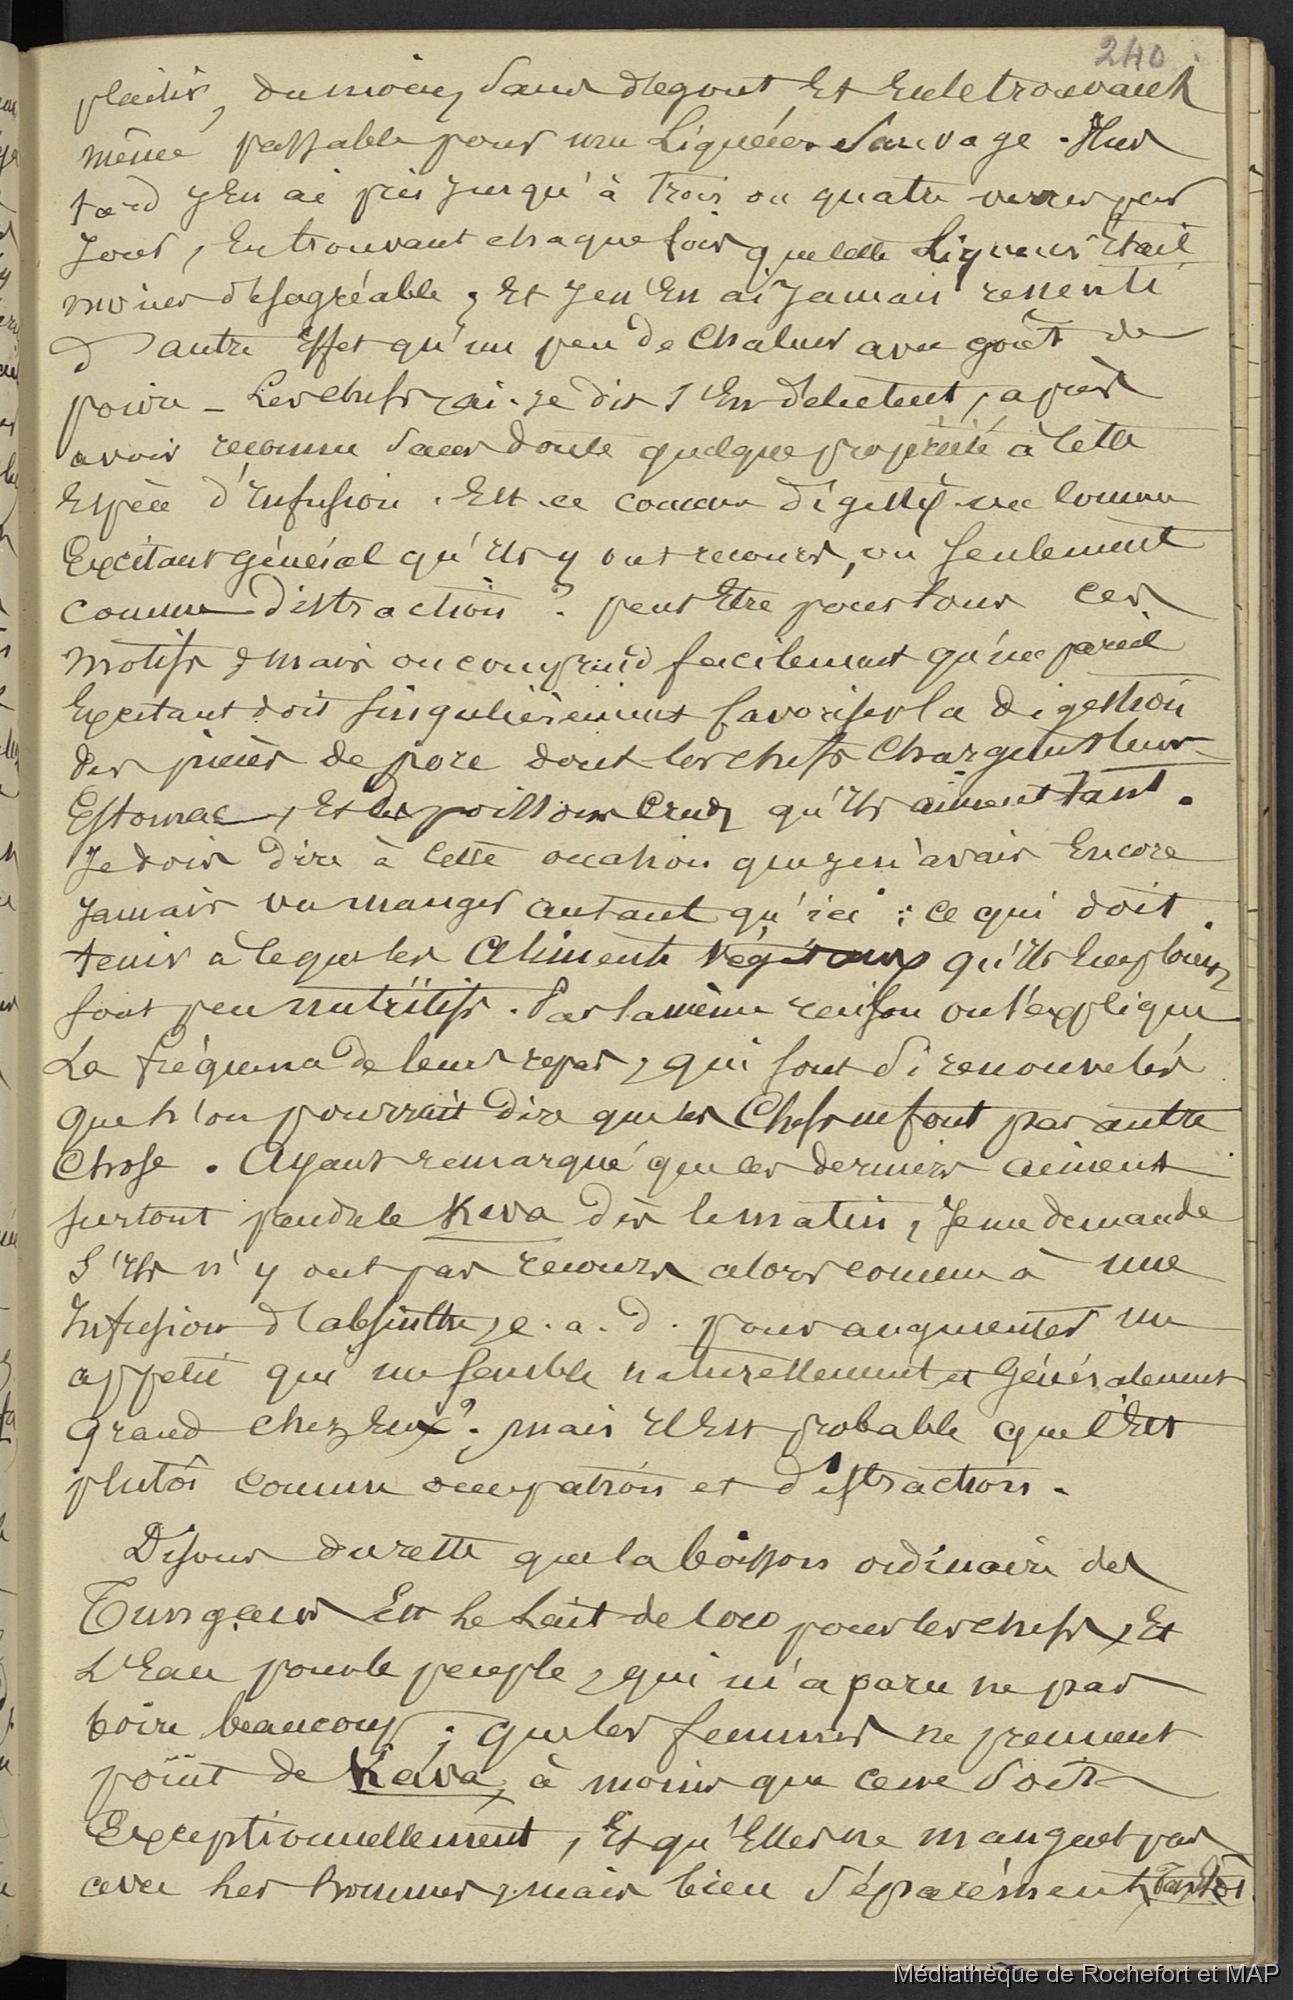 240
plaisir, du moins sans dégout Et en le trouvant
même passable pour une Liqueur Sauvage. Plus
tard j'en ai pris jusqu'à trois ou quatre verres par
jour, en trouvant chaque fois que cette Liqueur Etait
moins désagréable, Et je n'en ai jamais ressenti
d'autre Effet qu'un peu de chaleur avec goût de
poivre - Les chefs, ai-je dit s'en délectent, après
avoir reconnu sans doute quelque propriété à cette
Espèce d'infusion. Est-ce comme digestif ou comme
Excitant général qu'ils y ont recours, ou seulement
comme distraction ? peut Etre pour tous ces
motifs, mais on comprend facilement qu'un pareil
Excitant doit singulièrement favoriser la digestion
des pièces de porc dont les chefs chargent leur
Estomac, Et des poissons Cruds qu'ils aiment tant.
Je dois dire à cette occasion que je n'avais Encore
jamais vu manger autant qu'ici : ce qui doit
tenir à ce que les Aliments végétaux qu'ils emploient
sont peu nutritifs. Par la même raison on s'explique
La fréquence de leurs repas, qui sont si renouvelés
que l'on pourrait dire que les Chefs ne font pas autre
Chose. Ayant remarqué que ces derniers aiment
surtout prendre le Kava dès le matin, Je me demande
s'ils n'y ont pas recours alors comme à une
Infusion d'absinthe, c. a. d. pour augmenter un
appétit qui me semble naturellement et Généralement
grand chez Eux ? mais il Est probable que c'Est
plutôt comme occupation et distraction.
Disons du reste que la boisson ordinaire des
Tungas Est le Lait de Coco pour les chefs, Et
L'Eau pour le peuple, qui m'a paru ne pas
boire beaucoup ; que les femmes ne prennent
point de Kava, à moins que ce ne soit
Exceptionnellement, Et qu'Elles ne mangent pas
avec les hommes, mais bien séparément, Tantôt
Médiathèque de Rochefort et MAP